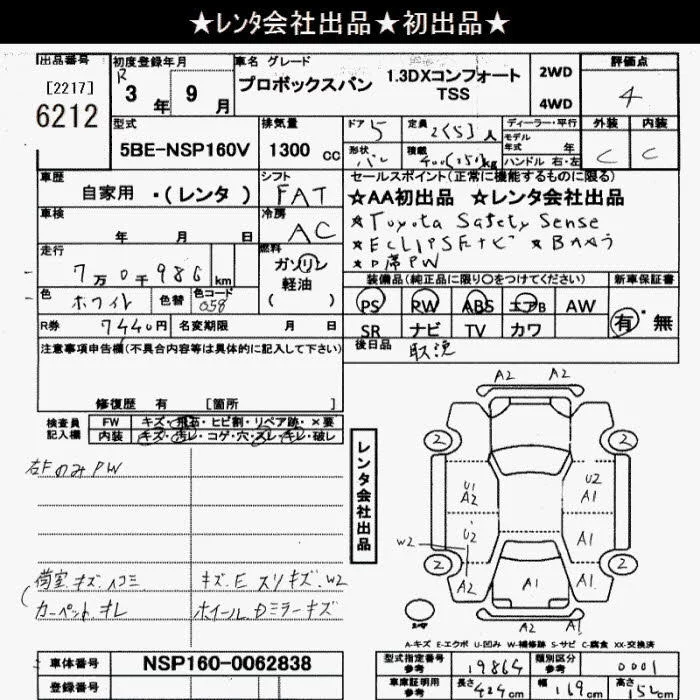 ★レンタ会社出品★初出品★
出品番号 初度登録年月 車名 グレード 評価点
[2217] R 3年 9月 プロボックスバン 1.3DXコンフォート TSS 2WD 4WD 4
6212
型式 排気量 ドア 5 定員 2(5)人 ディーラー・平行 外装 内装
5BE-NSP160V 1300 cc 形状 バン 積載 400(250)kg モデル年式 年 ハンドル 右・左 C C
車歴 シフト セールスポイント(正常に機能するものに限る)
自家用 ・(レンタ) FAT ★AA初出品 ★レンタ会社出品
車検 冷房 ★Toyota Safety Sense
年 月 日 AC ★ECLIPSEナビ ★Bカメラ
走行 燃料 ★P席PW
7万0千986km ガソリン 軽油 ( ) 装備品(純正品に限り○をつけてください) 新車保証書
色 ホワイト 色替 色コード 058 PS PW ABS エアB AW 有・無
R券 7440円 名変期限 月 日 SR ナビ TV カワ
注意事項申告欄(不具合内容等は具体的に記入して下さい) 後日品 取説
修復歴 有 [箇所 ]
検査員記入欄 FW キズ・飛石・ヒビ割・リペア跡・×要
内装 キズ・汚レ・コゲ・穴・スレ・キレ・破レ
右FのみPW
レンタ会社出品
A2 A2
2 2
U1 A2 U2 A1
U2 A1
W2
2 A2 A1 A1 2
A2 A1
荷室キズ、ヘコミ キズ、E スリキズ、W2
カーペットキレ ホイール、Dミラーキズ
A-キズ E-エクボ U-凹み W-補修跡 S-サビ C-腐食 XX-交換済
車体番号 NSP160-0062838 型式指定番号 参考 19864 類別区分 参考 0001
登録番号 車庫証明用 参考 長さ 424cm 幅 169cm 高さ 152cm